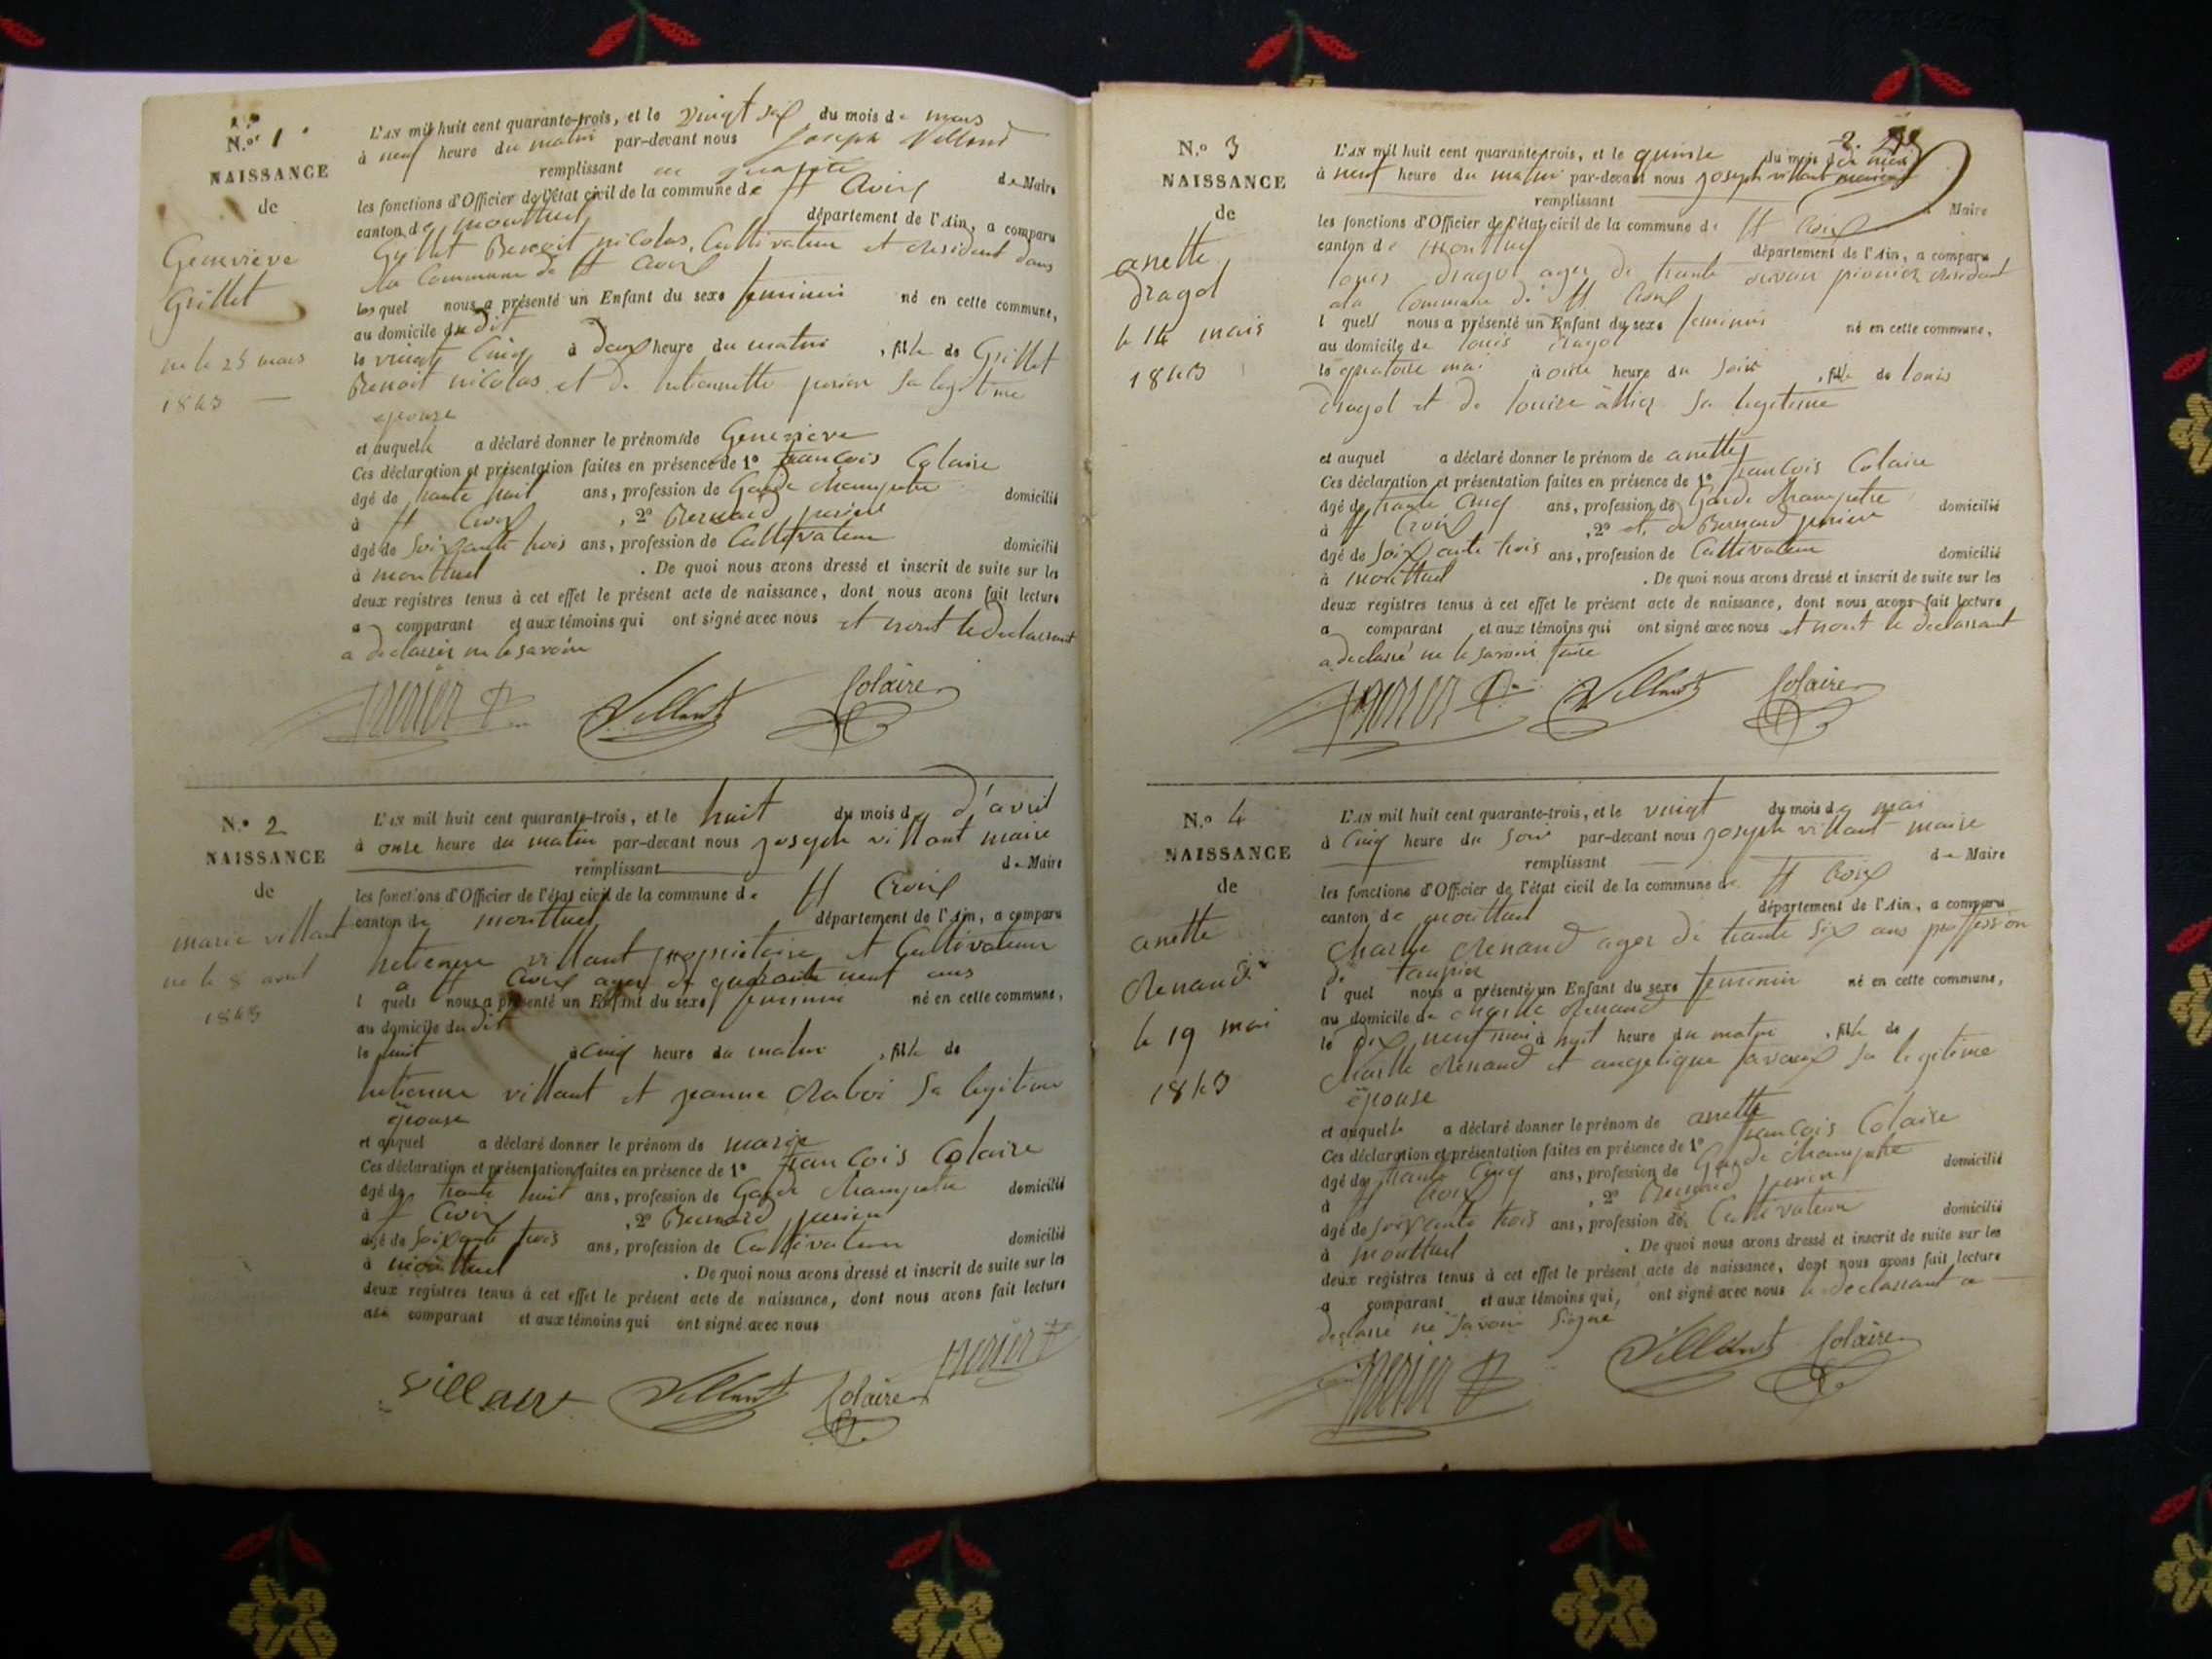 N.º 1
NAISSANCE
de
Geneviève
Grillet
né le 25 mars
1843
L'AN mil huit cent quarante-trois, et le vingt six du mois de mars
à neuf heure du matin par-devant nous Joseph Villand
remplissant en qualité de Maire
les fonctions d'Officier de l'état civil de la commune de St Croix
canton de montluel département de l'Ain, a comparu
Grillet Benoit nicolas, Cultivateur et résident dans
la Commune de St Croix
lesquel nous a présenté un Enfant du sexe feminin né en cette commune,
au domicile du dit
le vingt Cinq à deux heure du matin , fille de Grillet
Benoit nicolas et de hetiennette perier Sa legitime
epouse
et auquelle a déclaré donner le prénom de Genevieve
Ces déclaration et présentation faites en présence de 1º francois Colaire
âgé de trante huit ans, profession de Garde champetre domicilié
à St Croix , 2º Bernard perier
âgé de Soixante trois ans, profession de Cultivateur domicilié
à montluel . De quoi nous avons dressé et inscrit de suite sur les
deux registres tenus à cet effet le présent acte de naissance, dont nous avons fait lecture
a comparant et aux témoins qui ont signé avec nous et nont le declarant
a declarer ne le savoir
perier Villant Colaire
N.º 2
NAISSANCE
de
marie villant
né le 8 avril
1843
L'AN mil huit cent quarante-trois, et le huit du mois d d'avril
à onse heure du matin par-devant nous joseph villant maire
remplissant de Maire
les fonctions d'Officier de l'état civil de la commune de St Croix
canton de montluel département de l'Ain, a comparu
hetienne villant propriétaire et Cultivateur
a St Croix ager de quarante neuf ans
l quels nous a présenté un Enfant du sexe feminin né en cette commune,
au domicile du dit
le huit à Cinq heure du matin , fille de
hetienne villant et jeanne Raboi Sa legitime
épouse
et auquel a déclaré donner le prénom de marie
Ces déclaration et présentation faites en présence de 1º francois Colaire
âgé de trante huit ans, profession de Garde champetre domicilié
à St Croix , 2º Bernard perier
âgé de Soixante trois ans, profession de Cultivateur domicilié
à montluel . De quoi nous avons dressé et inscrit de suite sur les
deux registres tenus à cet effet le présent acte de naissance, dont nous avons fait lecture
au comparant et aux témoins qui ont signé avec nous
villant Villant Colaire perier
2.
N.º 3
NAISSANCE
de
anette
dragol
le 14 mais
1843
L'AN mil huit cent quarante-trois, et le quinse du mois de mai
à neuf heure du matin par-devant nous joseph villant maire
remplissant Maire
les fonctions d'Officier de l'état civil de la commune de St Croix
canton de montluel département de l'Ain, a comparu
louis dragol ager de trante resident
a la Commune de St Croix
l quell nous a présenté un Enfant du sexe feminin né en cette commune,
au domicile de louis dragol
le quatorse mai à onse heure du Soir , fille de louis
dragol et de louise Sa legitime
et auquel a déclaré donner le prénom de anette
Ces déclaration et présentation faites en présence de 1º francois Colaire
âgé de trante Cinq ans, profession de Garde champetre domicilié
à St Croix , 2º et de Bernard perier
âgé de Soixante trois ans, profession de Cultivateur domicilié
à montluel . De quoi nous avons dressé et inscrit de suite sur les
deux registres tenus à cet effet le présent acte de naissance, dont nous avons fait lecture
a comparant et aux témoins qui ont signé avec nous et nont le declarant
a declaré ne le savoir faire
perier Villant Colaire
N.º 4
NAISSANCE
de
anette
Renand
le 19 mai
1843
L'AN mil huit cent quarante-trois, et le vingt du mois de mai
à Cinq heure du Soir par-devant nous joseph villant maire
remplissant de Maire
les fonctions d'Officier de l'état civil de la commune de St Croix
canton de montluel département de l'Ain, a comparu
Charlle Renand ager de trante Six ans proffession
de taupier
l quel nous a présenté un Enfant du sexe feminin né en cette commune,
au domicile de charlle Renand
le dix neuf mai à huit heure du matin , fille de
Charlle Renand et angelique favaux Sa legitime
épouse
et auquelle a déclaré donner le prénom de anette
Ces déclaration et présentation faites en présence de 1º francois Colaire
âgé de trante Cinq ans, profession de Garde champetre domicilié
à St Croix , 2º Bernard perier
âgé de Soixante trois ans, profession de Cultivateur domicilié
à montluel . De quoi nous avons dressé et inscrit de suite sur les
deux registres tenus à cet effet le présent acte de naissance, dont nous avons fait lecture
a comparant et aux témoins qui, ont signé avec nous le declarant a
declaré ne savoir Signé
perier Villant Colaire